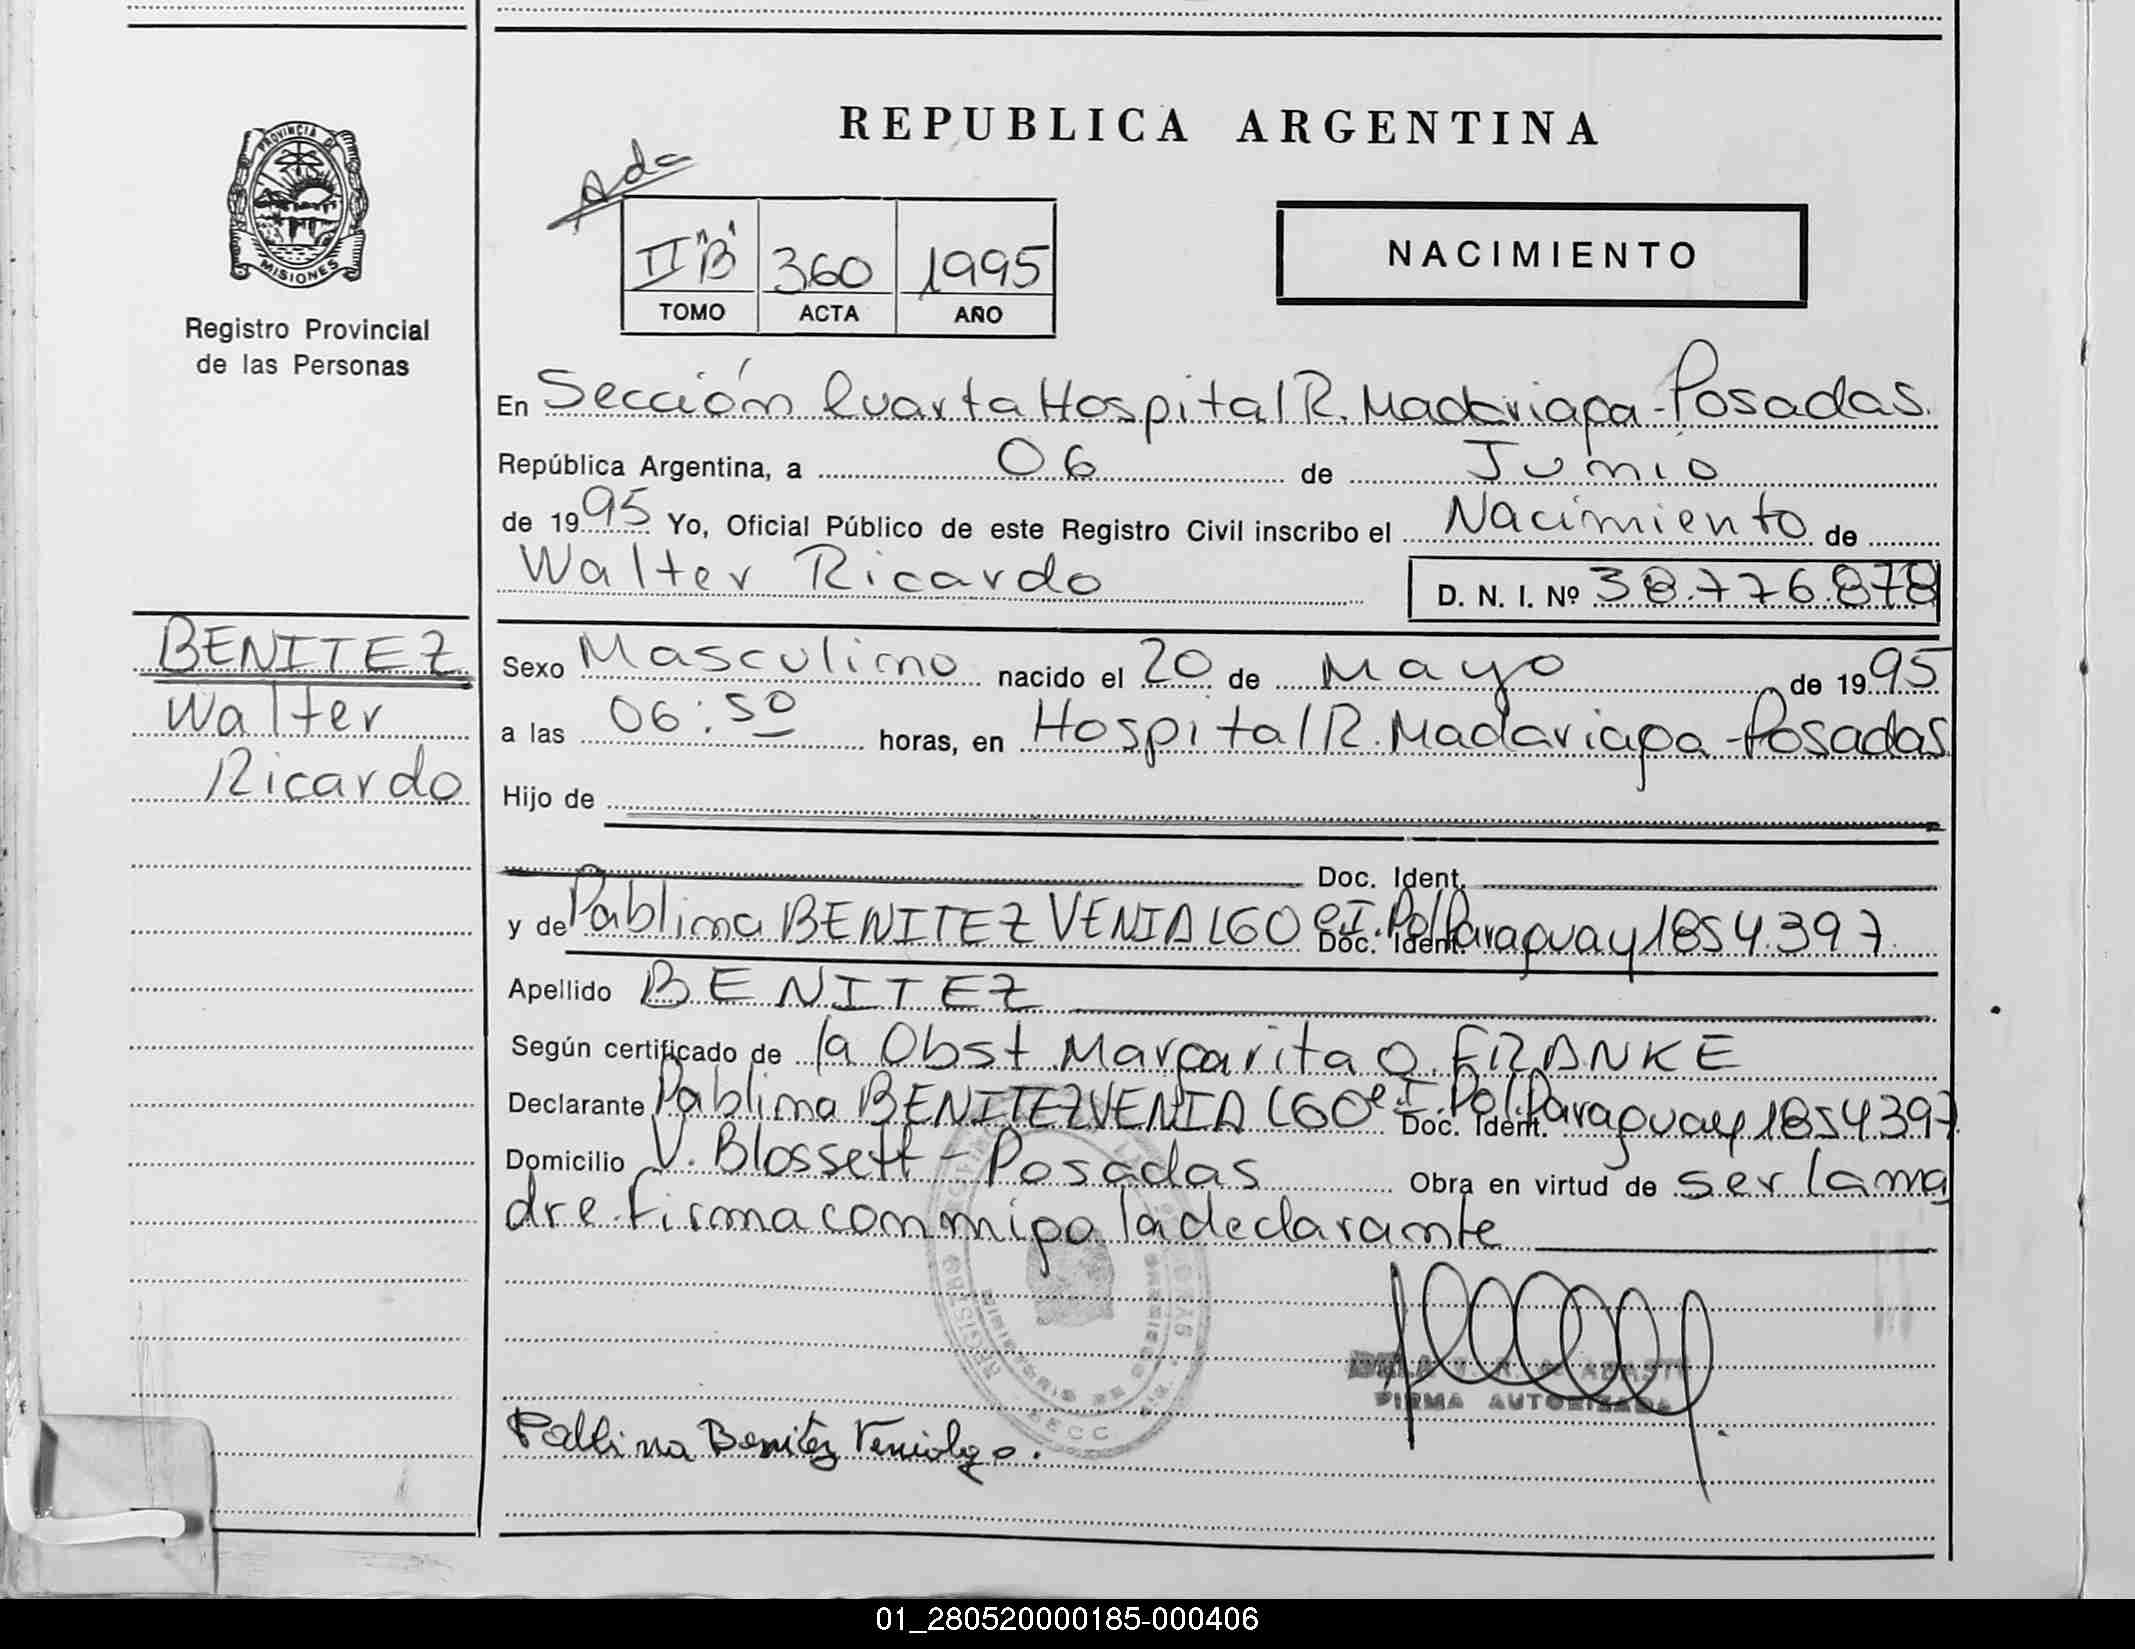 REPUBLICA ARGENTINA
PROVINCIA DE
MISIONES
Registro Provincial
de las Personas
Ada
II "B" 360 1995
TOMO ACTA AÑO
NACIMIENTO
En Sección Cuarta Hospital R. Madariaga - Posadas.
República Argentina, a 06 de Junio
de 1995 Yo, Oficial Público de este Registro Civil inscribo el Nacimiento de
Walter Ricardo D. N. I. Nº 38.776.878
BENITEZ
Walter
Ricardo
Sexo Masculino nacido el 20 de Mayo de 1995
a las 06:50 horas, en Hospital R. Madariaga - Posadas.
Hijo de
Doc. Ident.
y de Pablina BENITEZ VENIALGO Doc. Ident. C.I. Pol. Paraguay 1854.397.
Apellido BENITEZ
Según certificado de la Obst. Margarita O. FRANKE
Declarante Pablina BENITEZ VENIALGO Doc. Ident. C.I. Pol. Paraguay 1854397
Domicilio V. Blossett - Posadas Obra en virtud de ser la ma
dre. Firma conmigo la declarante
FIRMA AUTORIZADA
Pablina Benitez Venialgo.
01_280520000185-000406